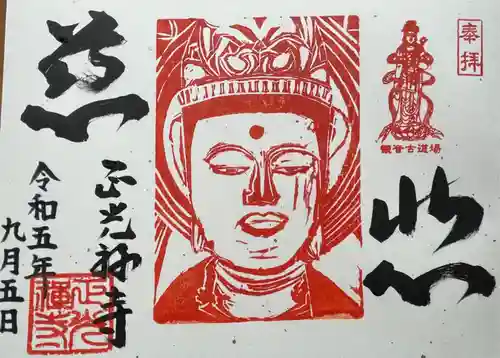 奉拝
観音古道場
慈
悲
正光禅寺
令和五年
九月五日